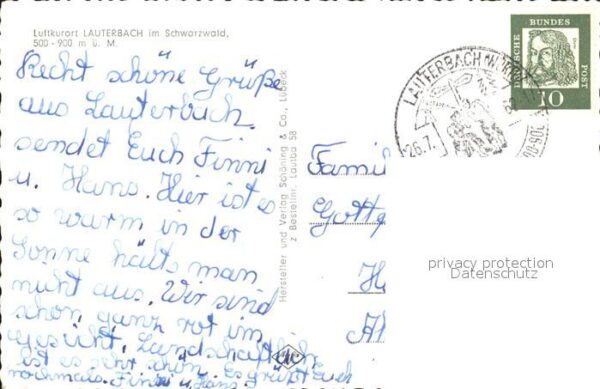 Luftkurort LAUTERBACH im Schwarzwald,
500-900 m ü. M.
Recht schöne Grüße
aus Lauterbach
sendet Euch Finni
u. Hans. Hier ist es
so warm in der
Sonne hälts man
nicht aus. Wir sind
schon ganz rot im
Gesicht. Landschaftlich
ist es sehr schön. Es grüßt Euch
nochmals. Finni u. Hans
Hersteller und Verlag Schöning & Co., Lübeck
z Bestellnr. Lautba 58
LAUTERBACH
26.7.
DEUTSCHE
BUNDES
POST
10
Famil
Gott
H
privacy protection
Datenschutz